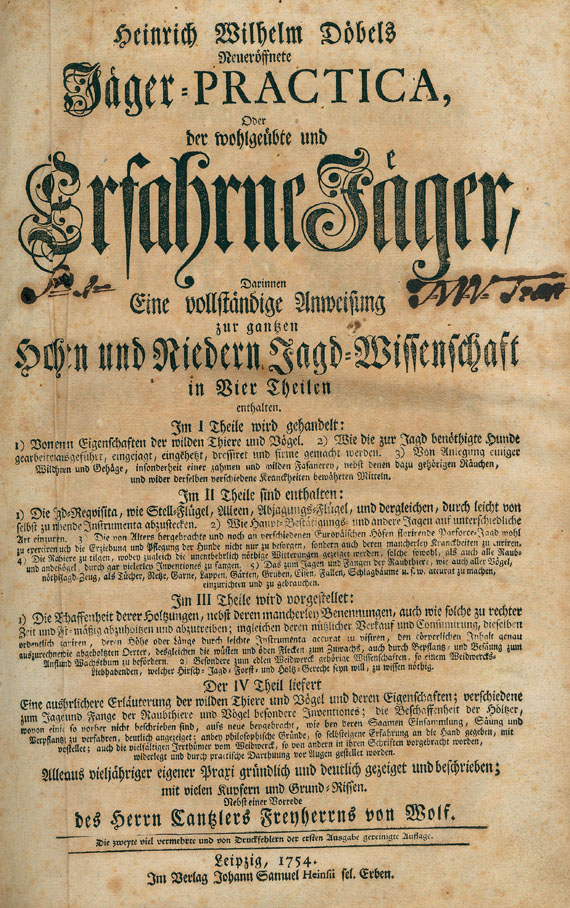 Heinrich Wilhelm Döbels
Neueröffnete
Jäger-PRACTICA,
Oder
der wohlgeübte und
Erfahrne Jäger,
Darinnen
Eine vollständige Anweisung
zur gantzen
Hohen und Niedern Jagd-Wissenschaft
in Vier Theilen
enthalten.
Im I Theile wird gehandelt:
1) Von Eigenschaften der wilden Thiere und Vögel. 2) Wie die zur Jagd benöthigte Hunde
gearbeitet, ausgeführt, eingejagt, eingehetzt, dressiret und firme gemacht werden. 3) Von Anlegung einiger
Wildbahn und Gehäge, insonderheit einer zahmen und wilden Fasanerey, nebst denen dazu gehörigen Räuchen,
und wider derselben verschiedene Kranckheiten bewährten Mitteln.
Im II Theile sind enthalten:
1) Die Jagd-Requisita, wie Stell-Flügel, Alleen, Abjagungs-Flügel, und dergleichen, durch leicht von
selbst zu Instrumenta abzustecken. 2) Wie Haupt-Bestätigungs- und andere Jagen auf unterschiedliche
Art einzurichten. 3) Die von Alters hergebrachte und noch an verschiedenen Europäischen Höfen florirende Parforce-Jagd wohl
zu exerciren, auch die Erziehung und Pflegung der Hunde nicht nur zu besorgen, sondern auch deren mancherley Kranckheiten zu curiren.
4) Die Rabiere zu tilgen, wobey zugleich die unentbehrlich nöthige Witterungen gezeiget werden, solche sowohl, als auch alle Raub-
und andere Vögel, durch gar vielerley Inventiones zu fangen. 5) Das zum Jagen und Fangen der Raubthiere, wie auch aller Vögel,
nöthige Jagd-Zeug, als Tücher, Netze, Garne, Lappen, Gärten, Gruben, Eisen, Fallen, Schlagbäume u. s. w. accurat zu machen,
einzurichten und zu gebrauchen.
Im III Theile wird vorgestellet:
1) Die Beschaffenheit derer Holtzungen, nebst deren mancherley Benennungen, auch wie solche zu rechter
Zeit und abzuholtzen und abzutreiben; ingleichen deren nützlicher Verkauf und Consumirung, dieselben
ordentlich zu deren Höhe oder Länge durch leichte Instrumenta accurat zu visiren, den cörperlichen Inhalt genau
auszurechnen, die abgeholtzten Oerter, desgleichen die wüsten und öden Flecken zum Zuwachs, auch durch Verpflantz- und Besäung zum
Anflug und Wachsthum zu befördern. 2) Besondere zum edlen Weidwerck gehörige Wissenschaften, so einem Weidwercks-
Liebhabenden, welcher Hirsch- Jagd- Forst- und Holtz-Gerecht seyn will, zu wissen nöthig.
Der IV Theil liefert
Eine ausführlichere Erläuterung der wilden Thiere und Vögel und deren Eigenschaften; verschiedene
zum Jagen und Fange der Raubthiere und Vögel besondere Inventiones; die Beschaffenheit der Höltzer,
wovon einige so vorher nicht beschrieben sind, aufs neue hergebracht, wie bey deren Saamen Einsammlung, Säung und
Verpflantzung zu verfahren, deutlich angezeiget; anbey philosophische Gründe, so selbsteigene Erfahrung an die Hand gegeben, mit
vorstellet; auch die vielfältigen Irrthümer vom Weidwerck, so von andern in ihren Schriften vorgebracht worden,
widerlegt und durch practische Darthuung vor Augen gestellet worden.
Alles aus vieljähriger eigener Praxi gründlich und deutlich gezeiget und beschrieben;
mit vielen Kupfern und Grund-Rissen.
Nebst einer Vorrede
des Herrn Cantzlers Freyherrns von Wolf.
Die zweyte viel vermehrte und von Druckfehlern der ersten Ausgabe gereinigte Auflage.
Leipzig, 1754.
Im Verlag Johann Samuel Heinsii sel. Erben.